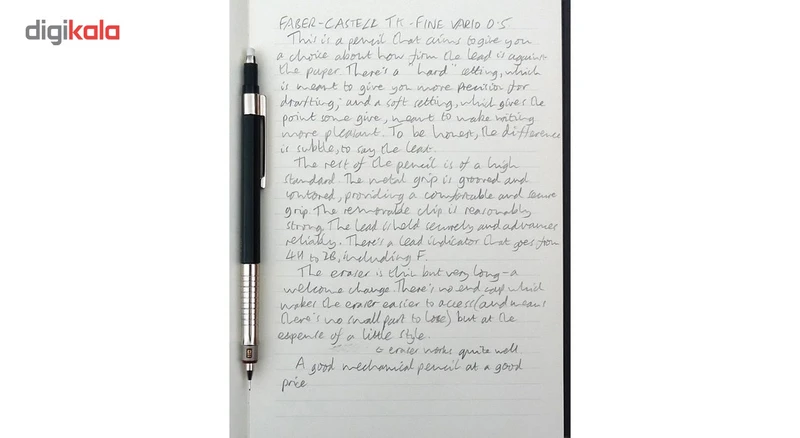 digikala
FABER-CASTELL TK-FINE VARIO 0.5
This is a pencil that aims to give you
a choice about how firm the lead is against
the paper. There's a "hard" setting, which
is meant to give you more precision for
drafting; and a soft setting, which gives the
point some give, meant to make writing
more pleasant. To be honest, the difference
is subtle, to say the least.
The rest of the pencil is of a high
standard. The metal grip is grooved and
contored, providing a comfortable and secure
grip. The removable clip is reasonably
strong. The lead is held securely and advances
reliably. There's a lead indicator that goes from
4H to 2B, including F.
The eraser is thin but very long - a
welcome change. There's no end cap which
makes the eraser easier to access (and means
there's no small part to lose) but at the
expense of a little style.
eraser works quite well
A good mechanical pencil at a good
price